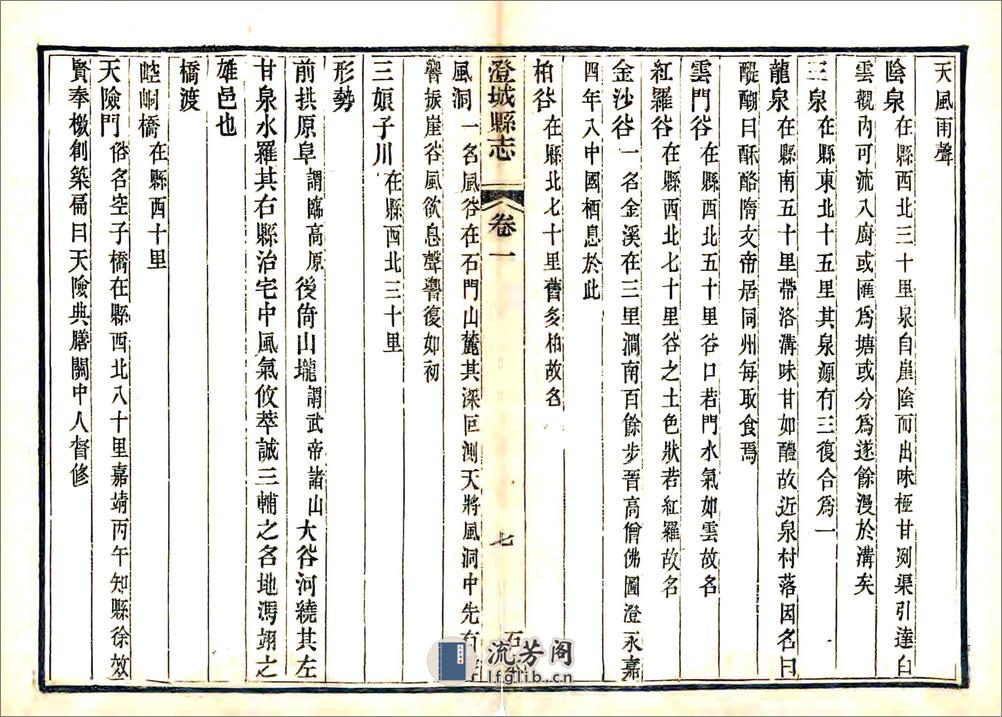 天風雨聲
陰泉在縣西北三十里泉自崖陰而出味極甘冽渠引達白
雲觀內可流入廚或匯爲塘或分爲遂餘漫於溝矣
三泉在縣東北十五里其泉源有三復合爲一
龍泉在縣南五十里帶洛溝味甘如醴故近泉村落因名曰
醍醐曰酥酪隋文帝居同州每取食焉
雲門谷在縣西北五十里谷口若門水氣如雲故名
紅羅谷在縣西北七十里谷之土色狀若紅羅故名
金沙谷一名金溪在三里澗南百餘步晉高僧佛圖澄永嘉
四年入中國栖息於此
柏谷在縣北七十里舊多柏故名
澄城縣志 卷一 七
風洞一名風谷在石門山麓其深叵測天將風洞中先有
響振崖谷風欲息聲響復如初
三娘子川在縣西北三十里
形勢
前拱原阜謂臨高原後倚山壠謂武帝諸山大谷河繞其左
甘泉水羅其右縣治宅中風氣攸萃誠三輔之名地馮翊之
雄邑也
橋渡
崆峒橋在縣西十里
天險門俗名空子橋在縣西北八十里嘉靖丙午知縣徐效
賢奉檄創築扁曰天險典膳關中人督修
流芳阁
rlfglib.cn